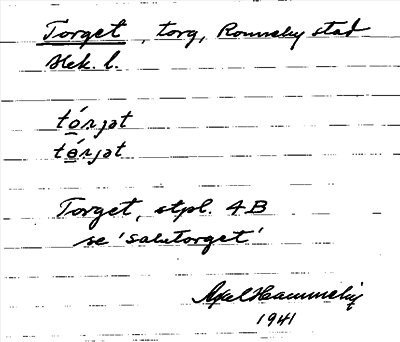 Torget, torg, Ronneby stad
Hek. l.
tórjət
tórjət
Torget, stpl. 4B
se 'salutorget'
Axel
1941